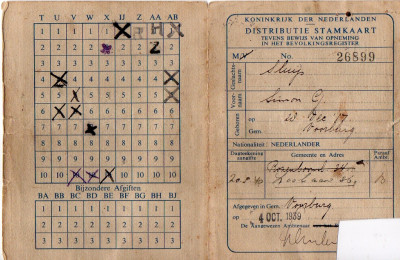 T U V W X IJ Z AA AB
1 1 1 1 1 1 1
2 2 2 2 2 2 2 2
3 3 3 3 3 3 3 3 3
4 4 4 4 4 4 4 4
5 5 5 5 5 5 5 5
6 6 6 6 6 6
7 7 7 7 7 7 7 7
8 8 8 8 8 8 8 8 8
9 9 9 9 9 9 9 9 9
10 10 10 10 10 10
Bijzondere Afgiften
BA BB BC BD BE BF BG BH BJ
1 1 1 1 1 1 1 1 1
2 2 2 2 2 2 2 2 2
3 3 3 3 3 3 3 3 3
KONINKRIJK DER NEDERLANDEN
DISTRIBUTIE STAMKAART
TEVENS BEWIJS VAN OPNEMING
IN HET BEVOLKINGSREGISTER
No. 26899
Geslachtsnaam Sluijs
Voornaam Simon
Geboren 23 Dec
Gem. Voorburg
Nationaliteit: NEDERLANDER
Dagteekening Gemeente en Adres Paraaf Ambt.
Afgegeven in Gem. Voorburg
op 4 OCT. 1939
De Aanwezen Ambtenaar